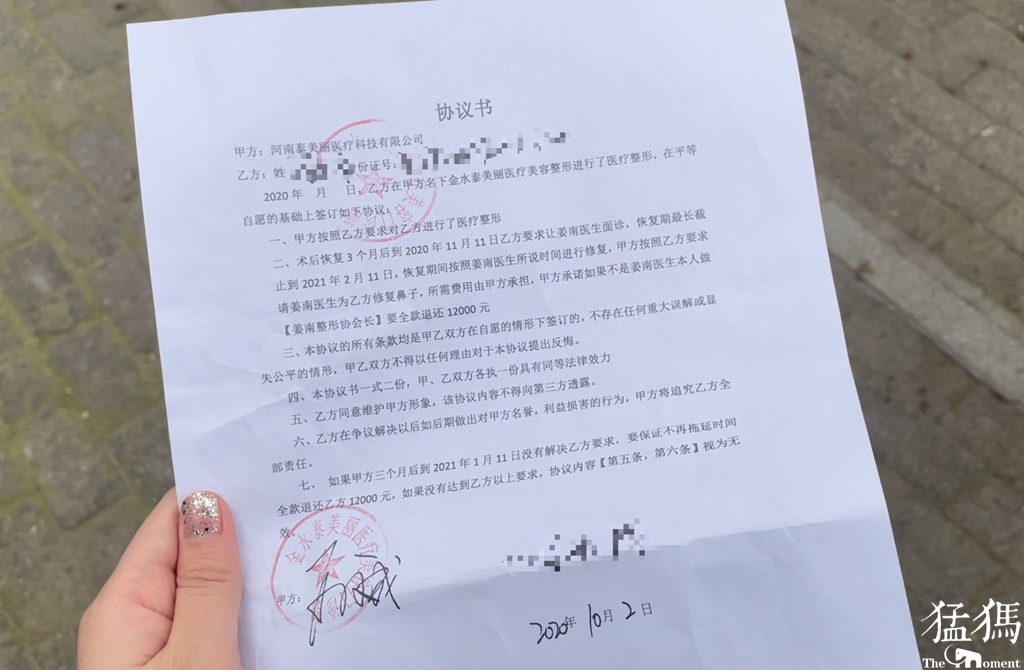 协议书
甲方：河南泰美丽医疗科技有限公司
乙方：姓 身份证号：
2020 年 月 日，乙方在甲方名下金水泰美丽医疗美容整形进行了医疗整形、在平等
自愿的基础上签订如下协议：
一、甲方按照乙方要求对乙方进行了医疗整形
二、术后恢复 3 个月后到 2020 年 11 月 11 日乙方要求让姜南医生面诊，恢复期最长截
止到 2021 年 2 月 11 日，恢复期间按照姜南医生所说时间进行修复，甲方按照乙方要求
请姜南医生为乙方修复鼻子，所需费用由甲方承担，甲方承诺如果不是姜南医生本人做
【姜南整形协会长】要全款退还 12000 元
三、本协议的所有条款均是甲乙双方在自愿的情形下签订的，不存在任何重大误解或显
失公平的情形，甲乙双方不得以任何理由对于本协议提出反悔。
四、本协议书一式二份，甲、乙双方各执一份具有同等法律效力
五、乙方同意维护甲方形象，该协议内容不得向第三方透露。
六、乙方在争议解决以后如后期做出对甲方名誉，利益损害的行为，甲方将追究乙方全
部责任。
七、 如果甲方三个月后到 2021 年 1 月 11 日没有解决乙方要求，要保证不再拖延时间
全款退还乙方 12000 元，如果没有达到乙方以上要求，协议内容【第五条，第六条】视为无
效。
金水泰美丽医疗美
甲方：
2020年 10月 2 日
猛犸
The Moment